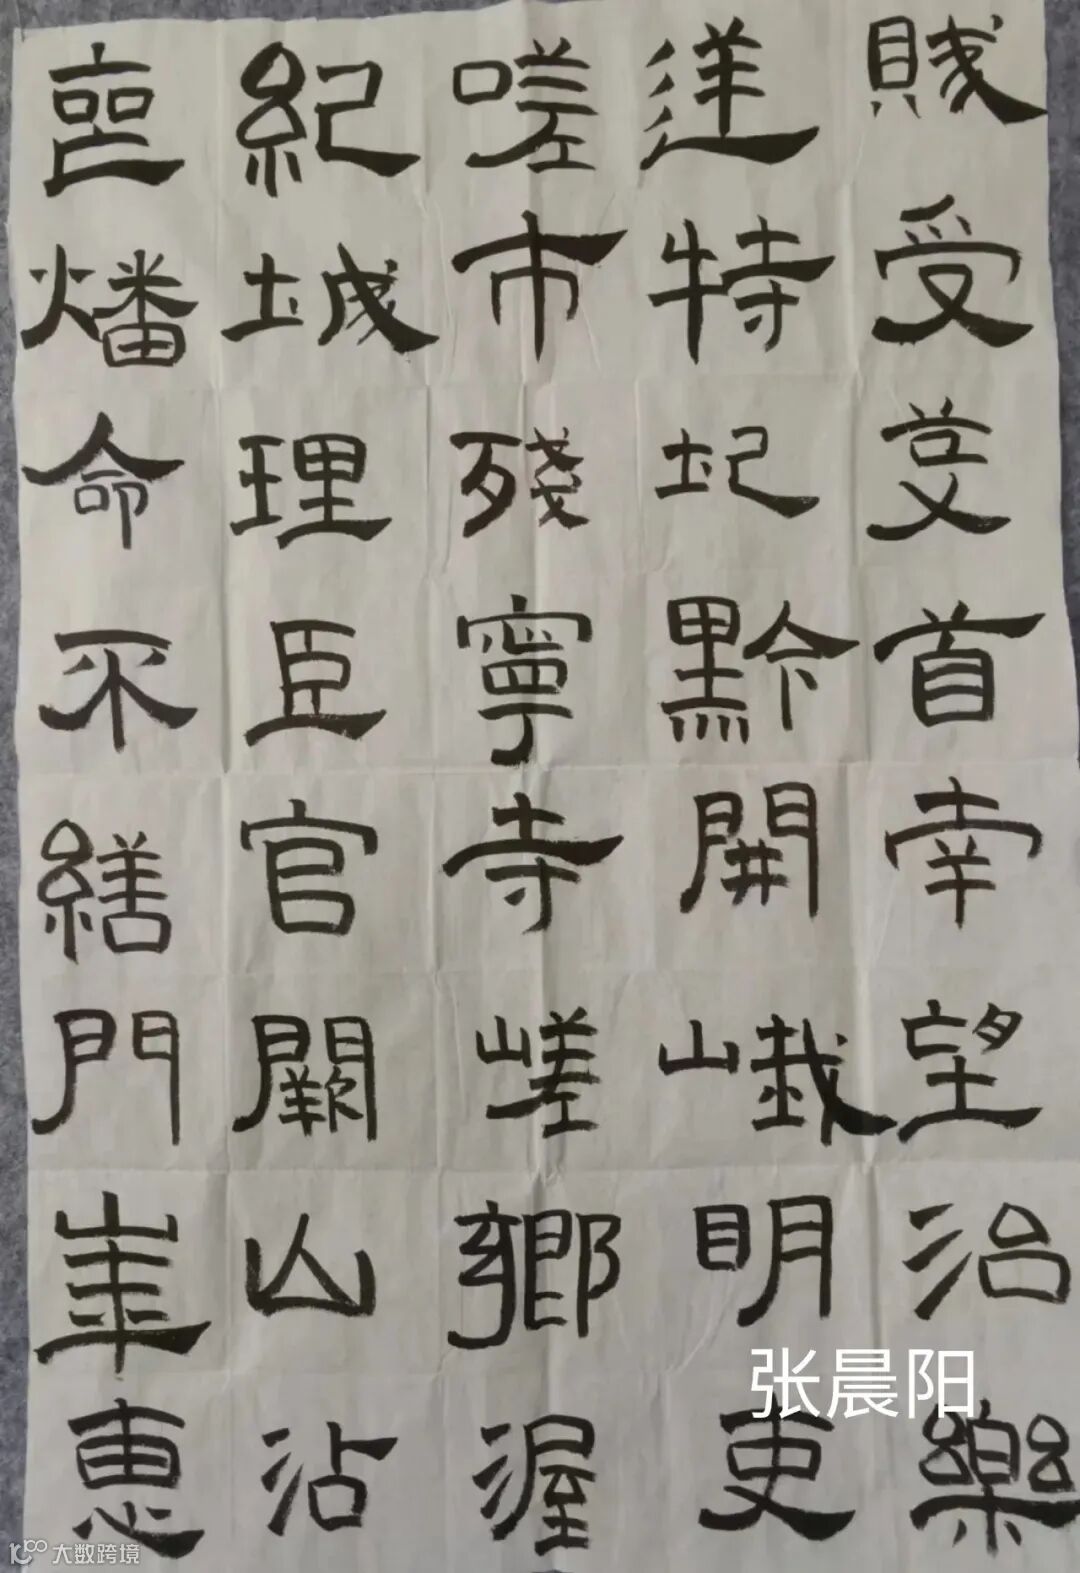 喪紀嗟逆賊
燔城市特受
命理殘圮芟
不臣寧黔首
繕官寺開南
門闕嵯峨望
崋山鄉明治
惠沾渥吏樂
张晨阳
大数跨境